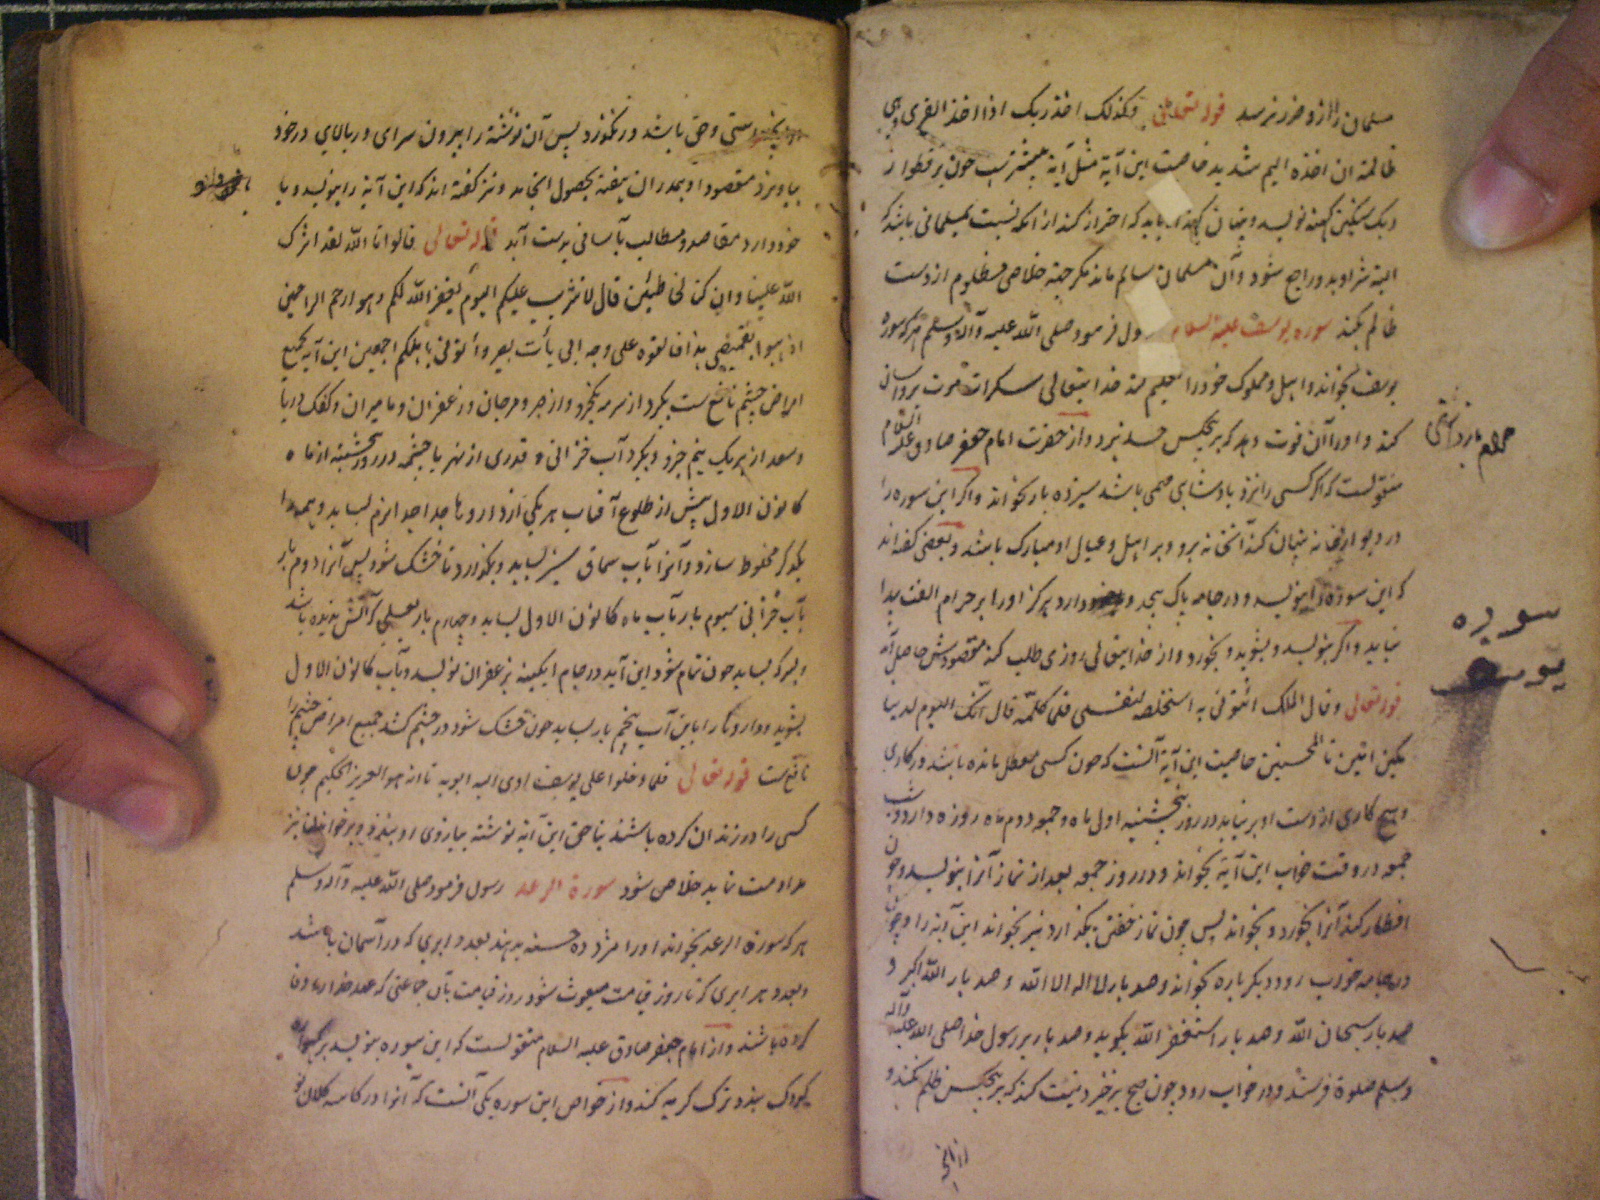 مسلمان را ازو ضرر نرسد قوله تعالی و کذلک اخذ ربک اذا اخذ القری وهی
ظالمة ان اخذه الیم شدید خاصیت این آیة مثل آیة پیشترست چون بر
نویسد و باید که احتراز کند از آنکه نسبت بمسلمانی باشد که
البته شر او بدو راجع شود و آن مسلمان سالم ماند مگر جهة خلاصی مظلوم از دست
ظالم بکند سوره یوسف علیه السلام رسول فرمود صلی الله علیه وآله وسلم هر که سوره
یوسف بخواند و اهل و مملوک خود را تعلیم کند خدایتعالی سکرات موت برو آسان
کند و او را آن قوت دهد که بر هیچکس حسد نبرد و از حضرت امام جعفر صادق علیه السلام
منقولست که اگر کسی را نزد پادشاهی مهمی باشد سیزده بار بخواند و اگر این سوره را
در دیوار خانه پنهان کند آنخانه برو و بر اهل و عیال او مبارک باشد و بعضی گفته اند
که این سوره را بنویسد و در جامه پاک پیچد و دارد هرگز او را بر حرام الفت پیدا
نیاید و اگر بنویسد و بشوید و بخورد و از خدایتعالی روزی طلب کند مقصودش حاصل آید
قوله تعالی وقال الملک ائتونی به استخلصه لنفسی فلما کلمه قال انک الیوم لدینا
مکین امین تا المحسنین خاصیت این آیة آنست که چون کسی معطل مانده باشد در کاری
و هیچ کاری از دست او بر نیاید در روز پنجشنبه اول ماه و جمعه دوم ماه روزه دارد و شب
جمعه در وقت خواب این آیة بخواند و در روز جمعه بعد از نماز آنرا بنویسد و چون
افطار کند آنرا بخورد و بخواند پس چون نماز خفتن بگذارد نیز بخواند این آیة را و چون
در جامه خواب رود دیگر باره بخواند و صد بار لا اله الا الله و صد بار الله اکبر و
صد بار سبحان الله و صد بار استغفر الله بگوید و صد بار بر رسول خدا صلی الله علیه وآله
وسلم صلوة فرستد و در خواب رود چون صبح برخیزد نیت کند که بر هیچکس ظلم نکند و
سوره
یوسف
راستی و حق باشد در نگذرد پس آن نوشته را بیرون سرای در بالای در خود
بیاویزد مقصود او بعد از آن هفته بحصول انجامد و نیز گفته اند که این آیة را بنویسد و با
خود دارد مقاصد و مطالب بآسانی بدست آید قوله تعالی قالوا تالله لقد اثرک
الله علینا وان کنا لخاطئین قال لا تثریب علیکم الیوم یغفر الله لکم وهو ارحم الراحمین
اذهبوا بقمیصی هذا فالقوه علی وجه ابی یأت بصیرا وأتونی باهلکم اجمعین این آیة بجمیع
امراض چشم نافع ست بگیرد از سرمه و از و مرجان و زعفران و مامیران و کفک دریا
و سعد از هر یک پنج جزو و بگیرد آب خزانی و قدری از نهر یا چشمه در روز پنجشنبه از ماه
کانون الاول پیش از طلوع آفتاب هر یکی از داروها جدا جدا نرم بساید و همه را
بیکدیگر مخلوط سازد و آنرا بآب سماق سبز بساید و بگذارد تا خشک شود پس آنرا دوم بار
بآب خزانی سیوم بار بآب ماه کانون الاول بساید و چهارم بار بعسلی که آتش ندیده باشد
و بسرکه بساید چون تمام شود این آیة در جام آبگینه بزعفران نویسد و بآب کانون الاول
بشوید و داروها را باین آب پنجم بار بساید چون خشک شود در چشم کشد جمیع امراض چشم را
نافع ست قوله تعالی فلما دخلوا علی یوسف اوی الیه ابویه تا انه هو العزیز الحکیم چون
کسی را در زندان کرده باشند بناحق این آیة نوشته ببازوی او بندد و بر خواندن نیز
مداومت نماید خلاص شود سورة الرعد رسول فرمود صلی الله علیه وآله وسلم
هر که سورة الرعد بخواند او را مزد ده حسنه بدهند بعدد ابری که در آسمان باشد
و بعدد هر ابری که تا روز قیامت مبعوث شود روز قیامت بآن جماعتی که عهد خدا را وفا
کرده باشند و از امام جعفر صادق علیه السلام منقولست که این سوره بنویسد
کودک بندد ترک گریه کند و از خواص این سوره یکی آنست که آنرا در کاسه کلان نو